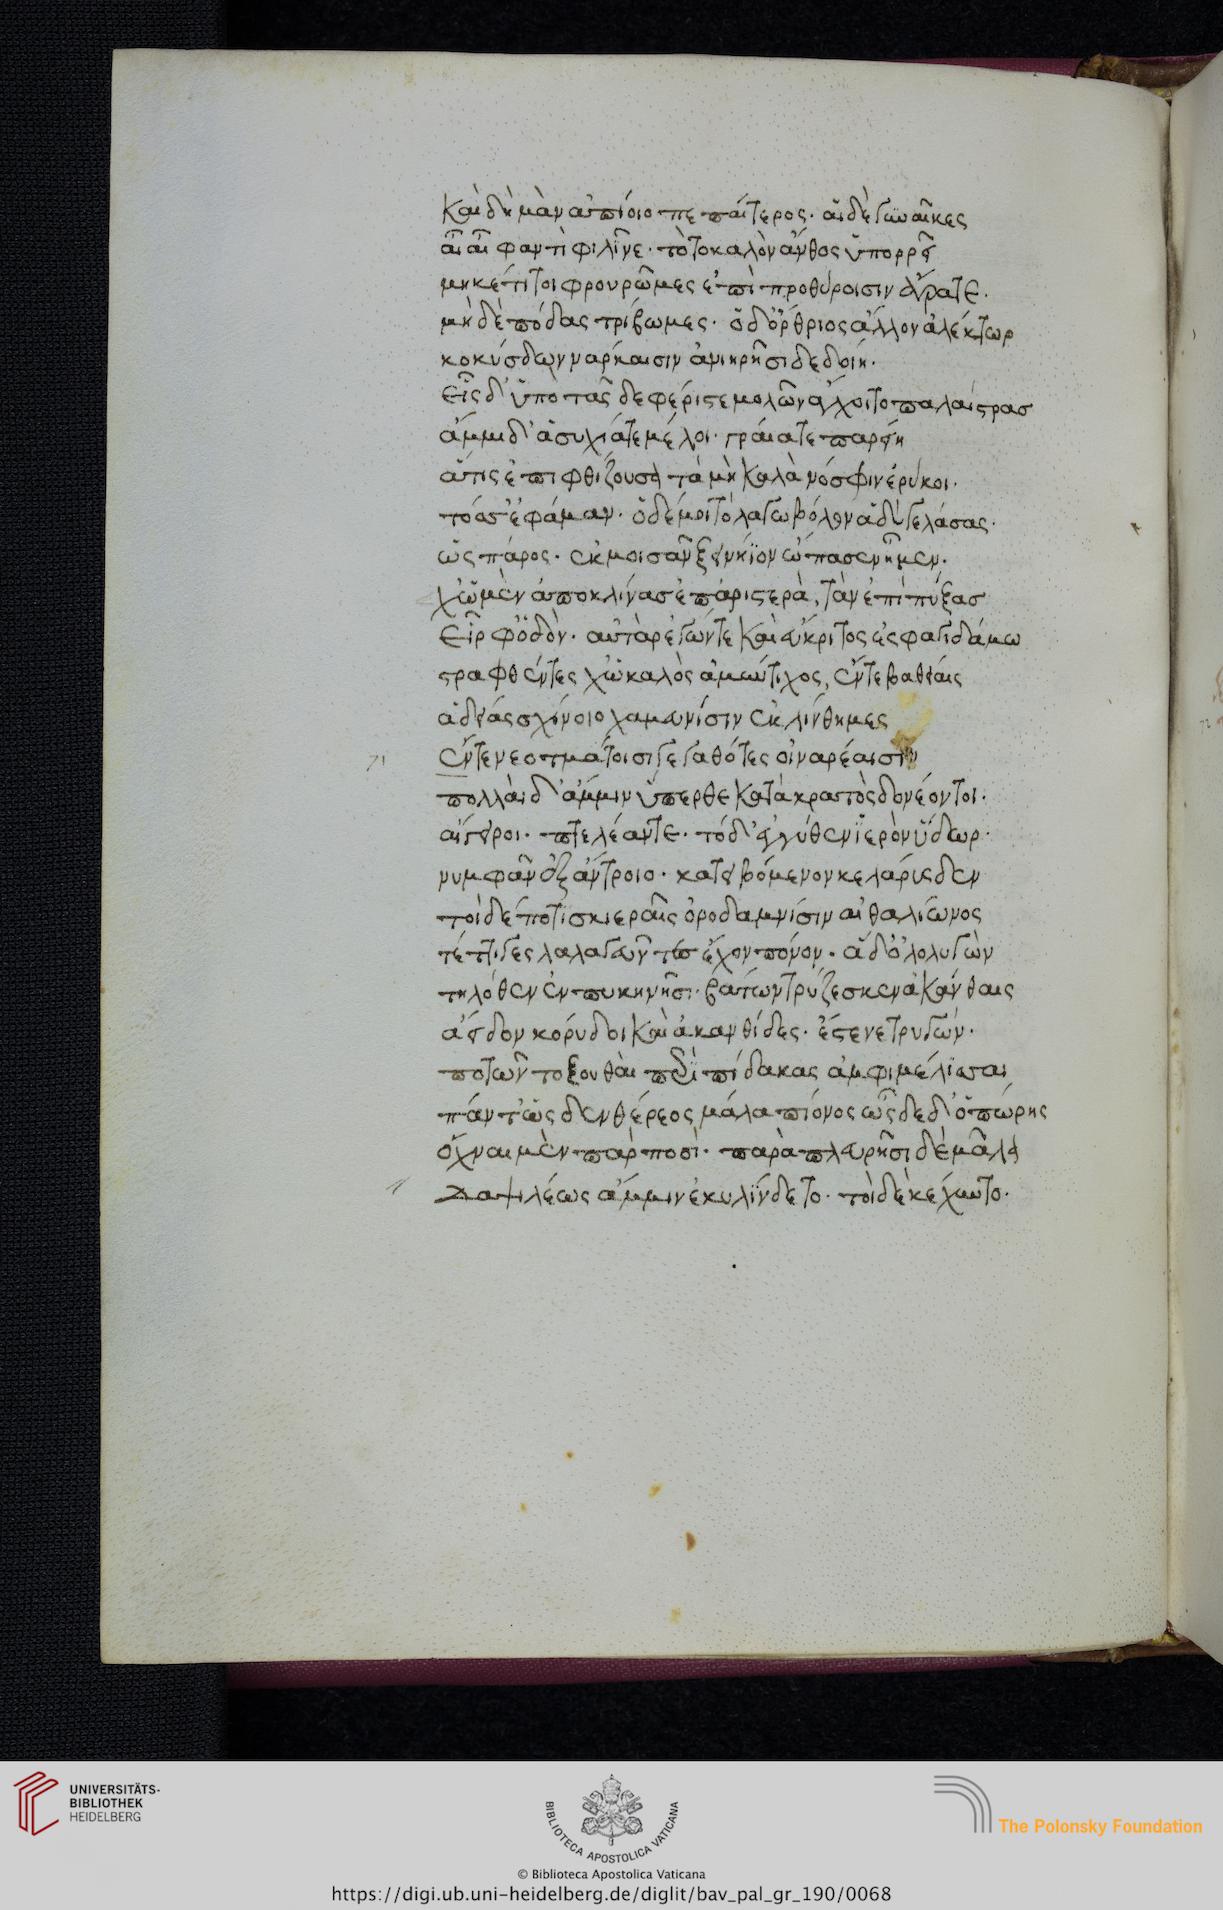 Καὶ δὴ μὰν ἀπίοιο πεπαίτερος· αἱ δὲ γυναῖκες
αἶ αἶ φαντὶ φιλῖνε· τό τοι καλὸν ἄνθος ὑπορρεῖ
μηκέτι τοι φρουρῶμες ἐπὶ προθύροισιν ἄρατε·
μὴ δὲ πόδας τρίβωμες· ὁ δ' ὄρθριος ἄλλον ἀλέκτωρ
κοκύσδων ναρκαισιν ἀνιηρῆσι δεδοίη·
εἷς δ' ὑπὸ τᾶς δε φέριστε μολὼν ἄγχοιτο παλαίστρας
ἄμμι δ' ἁσυχία τε μέλοι· γραία τε παρείη
ἅτις ἐπιφθίζουσα τὰ μὴ καλὰ νόσφιν ἐρύκοι·
τόσσ' ἐφάμαν· ὁ δέ μοι τὸ λαγωβόλον ἁδὺ γελάσας·
ὡς πάρος· ἐκ μοισᾶν ξεινήϊον ὤπασεν ἦμεν·
χὠ μὲν ἀποκλίνας ἐπ' ἀριστερὰ, τὰν ἐπὶ πύξας
εἷρφ' ὁδὸν· αὐτὰρ ἐγών τε καὶ εὔκριτος ἐς φασιδάμω
στραφθέντες χὠ καλὸς ἀμύντιχος, ἔν τε βαθείαις
ἁδείας σχίνοιο χαμευνίσιν ἐκλίνθημες
ἔν τε νεοτμάτοισι γεγαθότες οἰναρέαισιν
πολλαὶ δ' ἄμμιν ὕπερθε κατὰ κρατὸς δονέοντοι·
αἴγειροι· πτελέαι τε· τό δ' ἐγγύθεν ἱερὸν ὕδωρ·
νυμφᾶν ἐξ ἄντροιο· κατειβόμενον κελάρισδεν
τοὶ δέ ποτὶ σκιεραῖς ὀροδαμνίσιν αἰθαλίωνος
τέττιγες λαλαγεῦντες ἔχον πόνον· ἁ δ' ὀλολυγὼν
τηλόθεν ἐν πυκινῆσι· βάτων τρύζεσκεν ἀκάνθαις
ἄειδον κορύδοι καὶ ἀκανθίδες· ἔστενε τρυγών·
ποτῶντο ξουθαὶ περὶ πίδακας ἀμφὶ μέλισσαι
πάντ' ὦσδεν θέρεος μάλα πίονος ὦσδε δ' ὀπώρης
ὄχναι μὲν πὰρ ποσὶ· παρὰ πλευρῆσι δὲ μᾶλα
δαψιλέως ἄμμιν ἐκυλίνδετο· τοὶ δὲ κέχυντο·
71
UNIVERSITÄTS-
BIBLIOTHEK
HEIDELBERG
BIBLIOTECA APOSTOLICA VATICANA
The Polonsky Foundation
© Biblioteca Apostolica Vaticana
https://digi.ub.uni-heidelberg.de/diglit/bav_pal_gr_190/0068